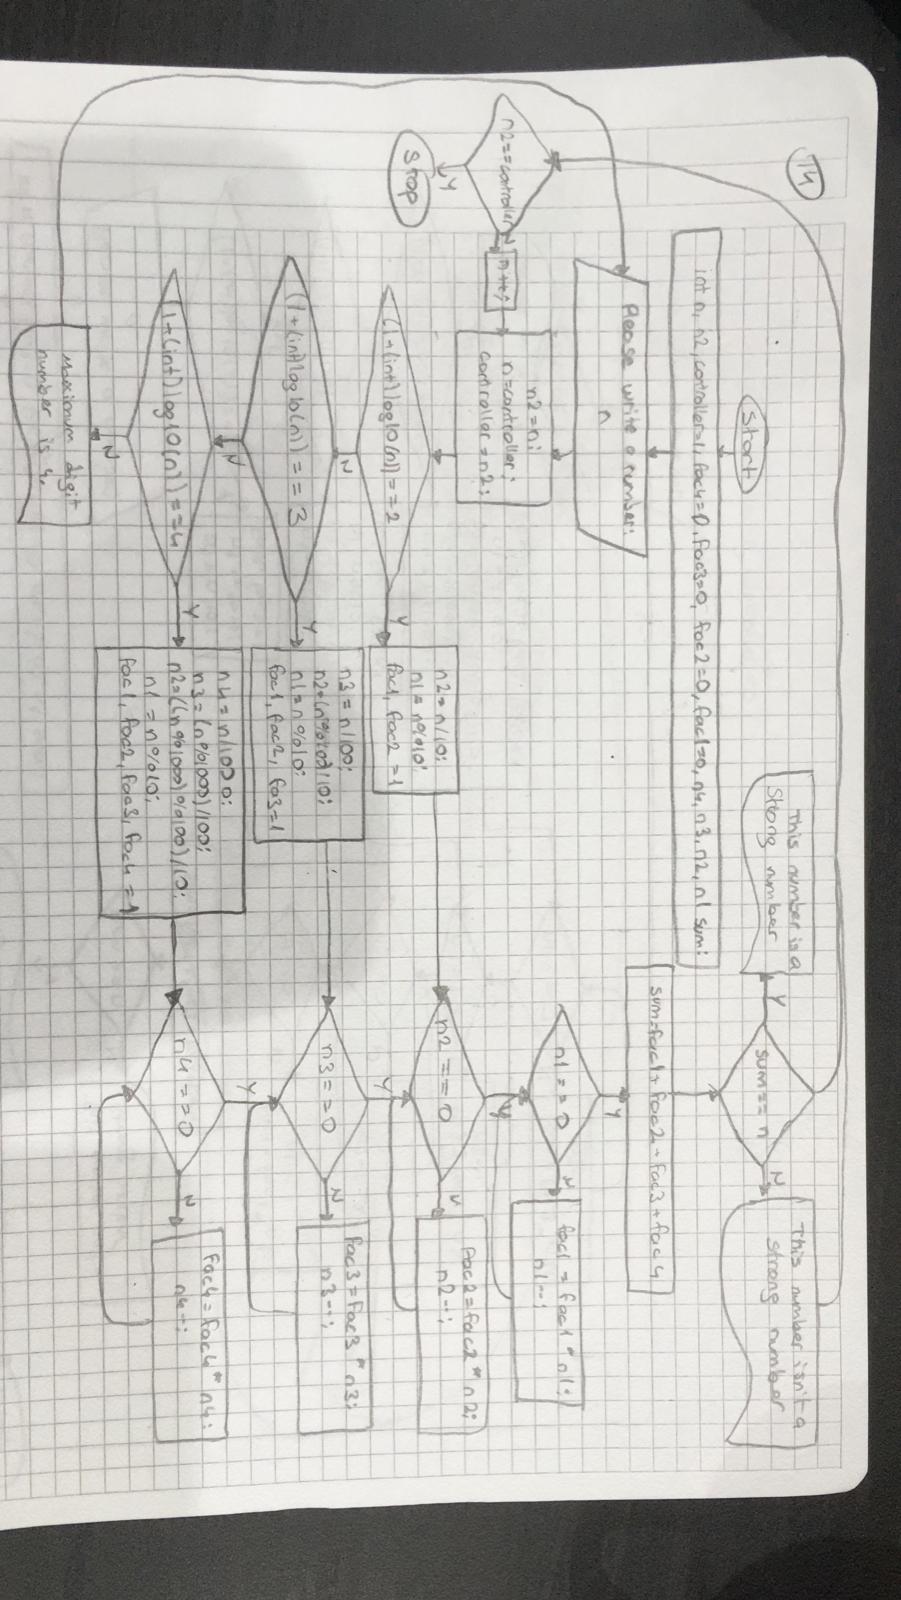 14
Start
int n, n2, controller=1, fac4=0, fac3=0, fac2=0, fac1=0, n4, n3, n2, n1 sum;
Please write a number:
n
n2==controller
N
n++;
Y
Stop
n2=n;
n=controller;
controller=n2;
(1+(int)log10(n))==2
Y
N
n2=n/10;
n1=n%10;
fac1, fac2=1
(1+(int)log10(n))==3
Y
N
n3=n/100;
n2=(n%100)/10;
n1=n%10;
fac1, fac2, fac3=1
(1+(int)log10(n))==4
Y
N
n4=n/1000;
n3=(n%1000)/100;
n2=((n%1000)%100)/10;
n1=n%10;
fac1, fac2, fac3, fac4=1
Maximum digit
number is 4.
n4==0
Y
N
fac4=fac4*n4;
n4--;
n3==0
Y
N
fac3=fac3*n3;
n3--;
n2==0
Y
N
fac2=fac2*n2;
n2--;
n1==0
Y
N
fac1=fac1*n1;
n1--;
sum=fac1+fac2+fac3+fac4
sum==n
Y
N
This number is a
strong number
This number isn't a
strong number